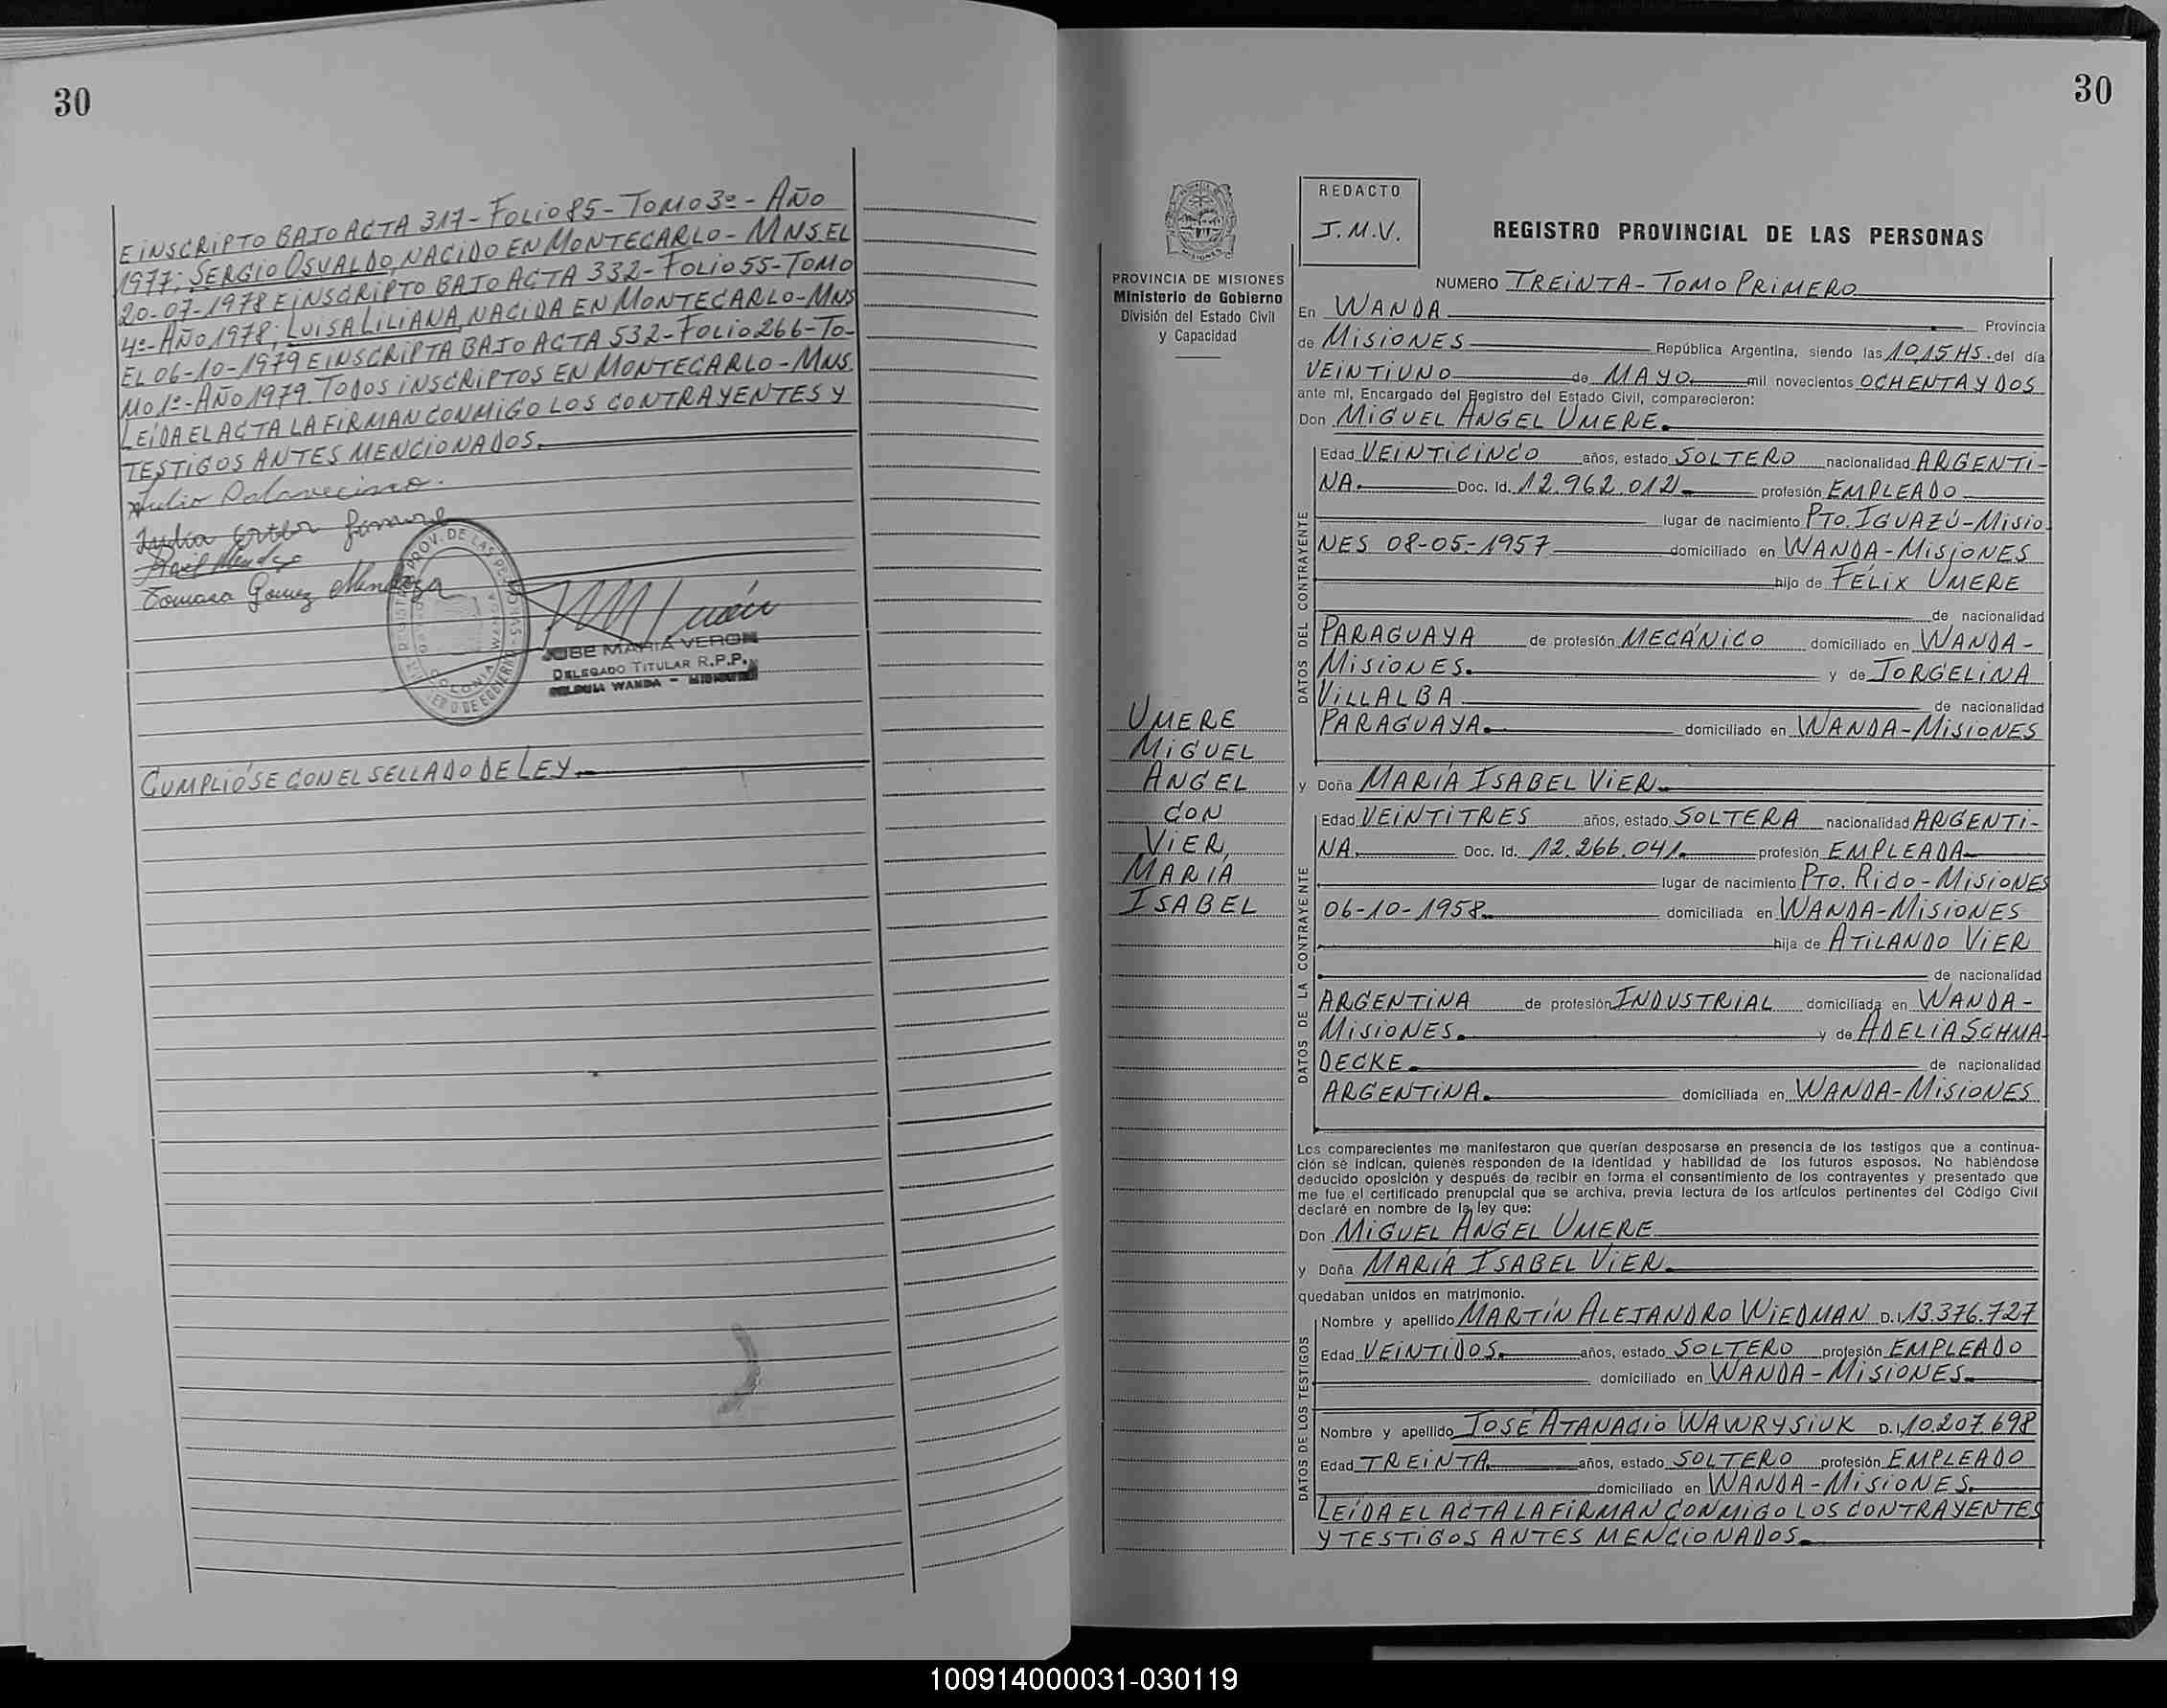 30
E INSCRIPTO BAJO ACTA 317 - FOLIO 85 - TOMO 3º - AÑO
1977; SERGIO OSVALDO, NACIDO EN MONTECARLO - MNS. EL
20-07-1978 E INSCRIPTO BAJO ACTA 332 - FOLIO 55 - TOMO
4º - AÑO 1978; LUISA LILIANA, NACIDA EN MONTECARLO - MNS
EL 06-10-1979 E INSCRIPTA BAJO ACTA 532 - FOLIO 266 - TO-
MO 1º - AÑO 1979. TODOS INSCRIPTOS EN MONTECARLO - MNS.
LEÍDA EL ACTA LA FIRMAN CONMIGO LOS CONTRAYENTES Y
TESTIGOS ANTES MENCIONADOS.
Julio Palavecino.
Tomasa Gomez Mendoza
JOSE MARIA VERON
DELEGADO TITULAR R.P.P.
COLONIA WANDA - MISIONES
CUMPLIÓSE CON EL SELLADO DE LEY.
30
PROVINCIA DE MISIONES
Ministerio de Gobierno
División del Estado Civil
y Capacidad
REDACTO
J.M.V.
REGISTRO PROVINCIAL DE LAS PERSONAS
NUMERO TREINTA - TOMO PRIMERO
En WANDA Provincia
de MISIONES República Argentina, siendo las 10,15 HS. del día
VEINTIUNO de MAYO mil novecientos OCHENTA Y DOS
ante mí, Encargado del Registro del Estado Civil, comparecieron:
Don MIGUEL ANGEL UMERE.
DATOS DEL CONTRAYENTE
Edad VEINTICINCO años, estado SOLTERO nacionalidad ARGENTI-
NA. Doc. Id. 12.962.012 profesión EMPLEADO
lugar de nacimiento PTO. IGUAZÚ - MISIO-
NES 08-05-1957 domiciliado en WANDA - MISIONES
hijo de FÉLIX UMERE
de nacionalidad
PARAGUAYA de profesión MECÁNICO domiciliado en WANDA -
MISIONES. y de JORGELINA
VILLALBA de nacionalidad
PARAGUAYA. domiciliado en WANDA - MISIONES
UMERE
MIGUEL
ANGEL
CON
VIER,
MARÍA
ISABEL
y Doña MARÍA ISABEL VIER.
DATOS DE LA CONTRAYENTE
Edad VEINTITRES años, estado SOLTERA nacionalidad ARGENTI-
NA. Doc. Id. 12.266.041. profesión EMPLEADA
lugar de nacimiento PTO. RICO - MISIONES
06-10-1958 domiciliada en WANDA - MISIONES
hija de ATILANDO VIER
de nacionalidad
ARGENTINA de profesión INDUSTRIAL domiciliada en WANDA -
MISIONES. y de ADELIA SCHMA-
DECKE. de nacionalidad
ARGENTINA. domiciliada en WANDA - MISIONES
Los comparecientes me manifestaron que querían desposarse en presencia de los testigos que a continua-
ción se indican, quienes responden de la identidad y habilidad de los futuros esposos. No habiéndose
deducido oposición y después de recibir en forma el consentimiento de los contrayentes y presentado que
me fue el certificado prenupcial que se archiva, previa lectura de los artículos pertinentes del Código Civil
declaré en nombre de la ley que:
Don MIGUEL ANGEL UMERE
y Doña MARÍA ISABEL VIER.
quedaban unidos en matrimonio.
DATOS DE LOS TESTIGOS
Nombre y apellido MARTÍN ALEJANDRO WIEDMAN D.I. 13.376.727
Edad VEINTIDOS. años, estado SOLTERO profesión EMPLEADO
domiciliado en WANDA - MISIONES.
Nombre y apellido JOSÉ ATANACIO WAWRYSIUK D.I. 10.207.698
Edad TREINTA años, estado SOLTERO profesión EMPLEADO
domiciliado en WANDA - MISIONES.
LEÍDA EL ACTA LA FIRMAN CONMIGO LOS CONTRAYENTES
Y TESTIGOS ANTES MENCIONADOS.
100914000031-030119